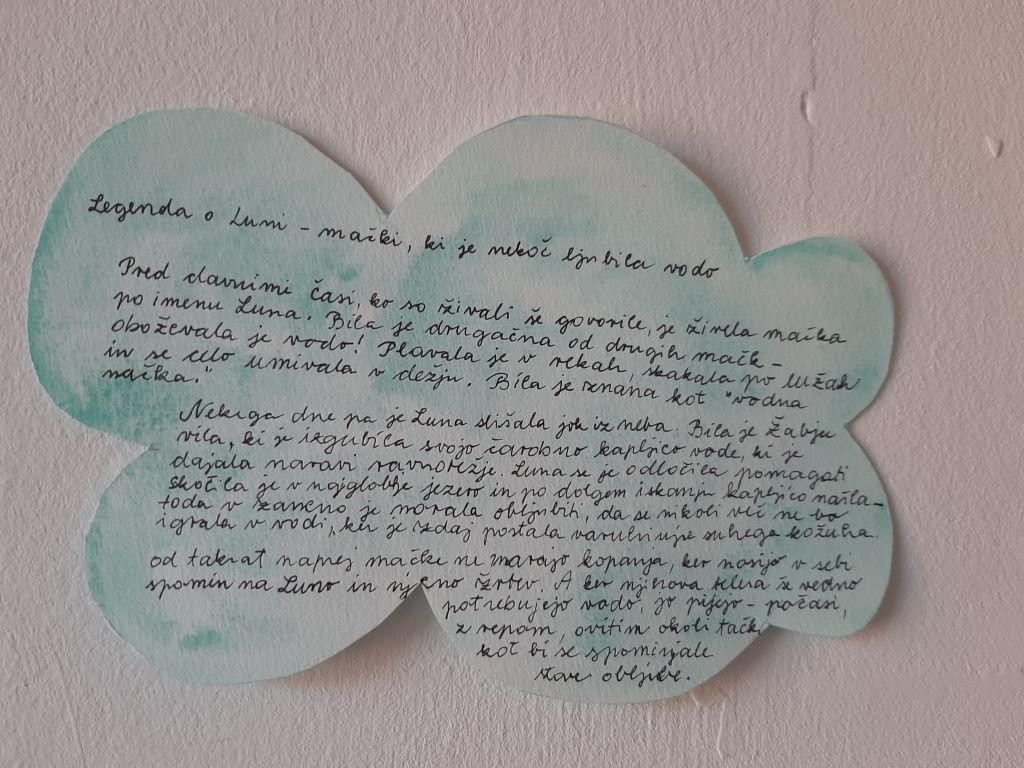 Legenda o Luni - mački, ki je nekoč ljubila vodo
Pred davnimi časi, ko so živali še govorile, je živela mačka
po imenu Luna. Bila je drugačna od drugih mačk -
oboževala je vodo! Plavala je v rekah, skakala po lužah
in se celo umivala v dežju. Bila je znana kot "vodna
mačka."
Nekega dne pa je Luna slišala jok iz neba. Bila je Žabja
vila, ki je izgubila svojo čarobno kapljico vode, ki je
dajala naravi ravnotežje. Luna se je odločila pomagati
skočila je v najgloblje jezero in po dolgem iskanju kapljico našla -
toda v zameno je morala obljubiti, da se nikoli več ne bo
igrala v vodi, ker je izdaj postala varuhinja suhega kožuha.
od takrat naprej mačke ne marajo kopanja, ker nosijo v sebi
spomin na Luno in njeno žrtev. A ker njihova telesa še vedno
potrebujejo vodo, jo pijejo - počasi,
z repom, ovitim okoli tačk,
kot bi se spominjale
stare obljube.